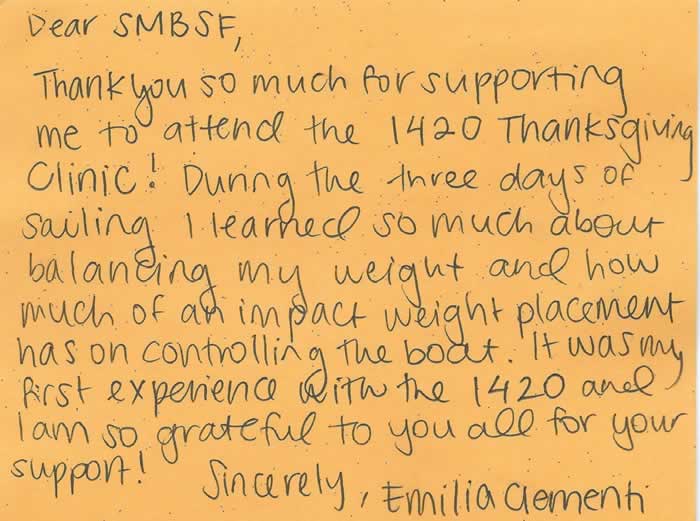 Dear SMBSF,
Thank you so much for supporting
me to attend the 1420 Thanksgiving
Clinic! During the three days of
sailing I learned so much about
balancing my weight and how
much of an impact weight placement
has on controlling the boat. It was my
first experience with the 1420 and
I am so grateful to you all for your
support!
Sincerely, Emilia Clementi